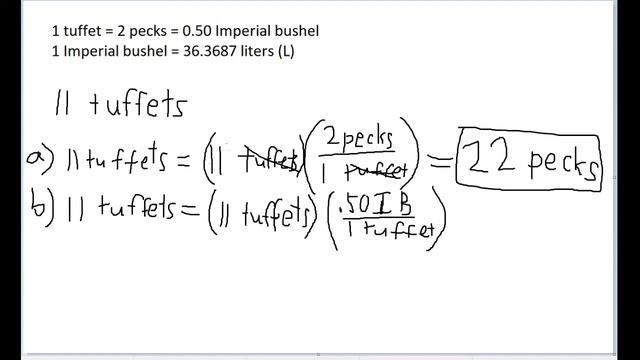 1 tuffet = 2 pecks = 0.50 Imperial bushel
1 Imperial bushel = 36.3687 liters (L)
11 tuffets
a) 11 tuffets = (11 tuffets) (2 pecks / 1 tuffet) = 22 pecks
b) 11 tuffets = (11 tuffets) (.50 I B / 1 tuffet)